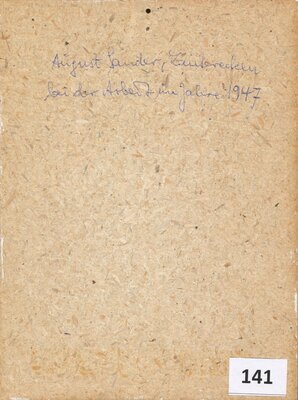 August Sander,
bei der Arbeit im Jahre 1947
141